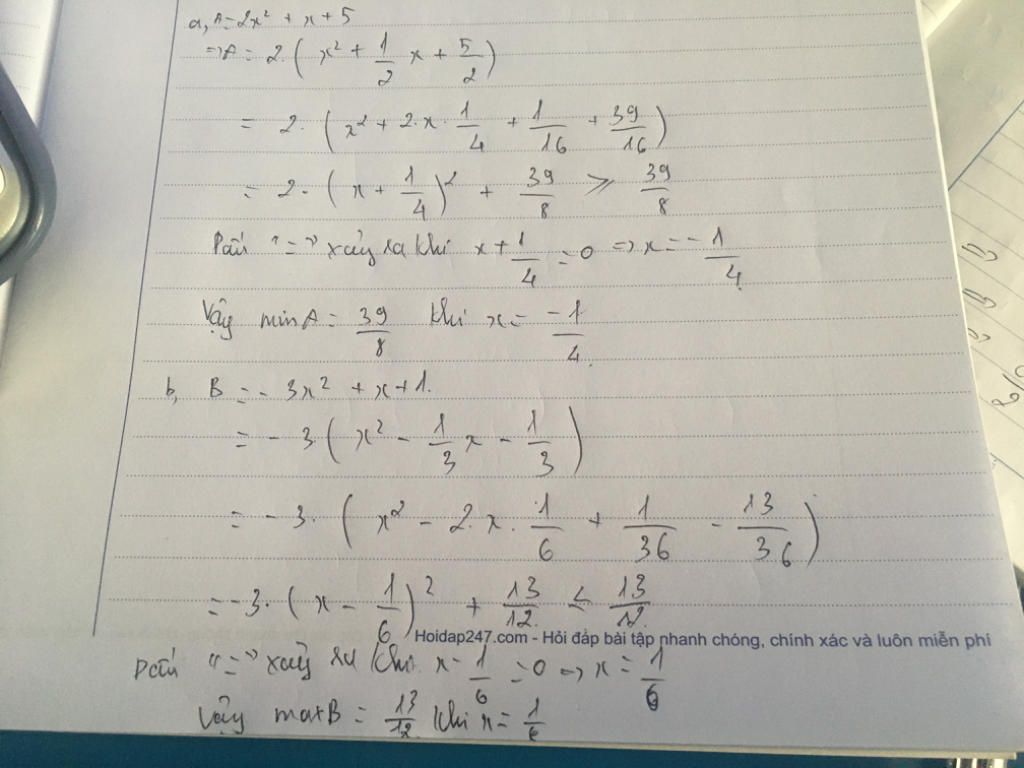 a, A = 2x² + x + 5
=> A = 2.(x² + 1/2 x + 5/2)
= 2.(x² + 2.x.1/4 + 1/16 + 39/16)
= 2.(x + 1/4)² + 39/8 ≥ 39/8
Dấu "=" xảy ra khi x + 1/4 = 0 => x = -1/4
Vậy min A = 39/8 khi x = -1/4.
b, B = -3x² + x + 1.
= -3.(x² - 1/3 x - 1/3)
= -3.(x² - 2.x.1/6 + 1/36 - 13/36)
= -3.(x - 1/6)² + 13/12 ≤ 13/12
Hoidap247.com - Hỏi đáp bài tập nhanh chóng, chính xác và luôn miễn phí
Dấu "=" xảy ra khi x - 1/6 = 0 => x = 1/6
Vậy max B = 13/12 khi x = 1/6